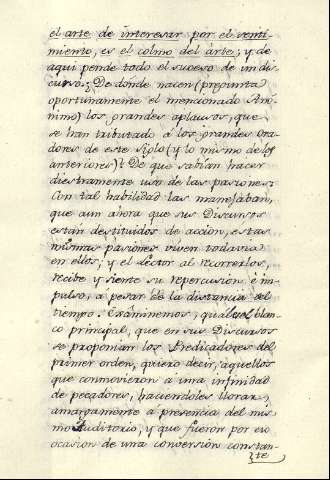 el arte de interesar por el senti-
miento, es el colmo del arte; y de
aqui pende todo el suceso de un dis-
curso. ¿De dónde nacen (pregunta
oportunamente el mencionado Anó-
nimo) los grandes aplausos, que
se han tributado á los grandes Ora-
dores de este siglo (y lo mismo de los
anteriores)? De que sabían hacer
diestramente uso de las pasiones:
Con tal habilidad las manejaban,
que aun ahora que sus Discursos
están destituidos de accion, estas
mismas pasiones viven todavia
en ellos, y el Lector al recorrerlos,
recibe y siente su repercusion é im-
pulso, á pesar de la distancia del
tiempo. Examinemos, qual es el blan-
co principal, que en sus Discursos
se proponian los Predicadores del
primer orden, quiero decir, aquellos
que conmovieron a una infinidad
de pecadores, haciendoles llorar
amargamente a presencia del mis-
mo Auditorio, y que fueron por eso
ocasion de una conversion constan-
te